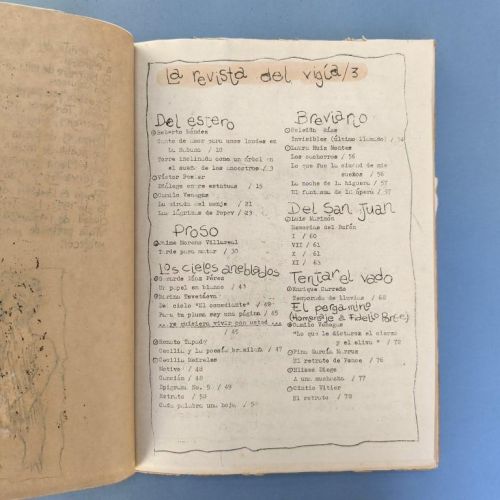 La revista del vigía/3
Del estero
Roberto Méndez
Canto de amor para unos londes en
La Habana / 10
Torre inclinada como un árbol en
el sueño de los ancestros /13
Víctor Foster
Diálogo entre estatuas / 15
Camilo Venegas
La mirada del monje / 21
Las lágrimas de Popov / 23
Proso
Jaime Moreno Villareal
Tarde para matar / 30
Los cielos aneblados
Gerardo Díaz Pérez
Un papel en blanco / 43
Marina Tsvetáeva
Del ciclo "El comediante" / 45
Para tu pluma soy una página / 45
...yo quisiera vivir con usted ...
/ 45
Renato Tapado
Cecilia y la poesía brasileña / 47
Cecilia Meireles
Motivo / 48
Canción / 48
Epigrama No. 5 / 49
Retrato / 50
Cada palabra una hoja / 50
Breviario
Invisibles (último llamado) / 54
Laura Ruiz Montes
Los cachorros / 56
Lo que fue la ciudad de mis
sueños / 56
La noche de la higuera / 57
El fantasma de la ópera / 57
Del San Juan
Luis Marimón
Memorias del Bufón
I / 60
VII / 61
X / 61
XI / 63
Tentar el vado
Enrique
Temporada de lluvias / 68
El pergamino
(Homenaje a Fidelio Ponce)
Camilo Venegas
"Lo que le dictaron el ciervo
y el olivo " / 72
Fina García Marruz
El retrato de Ponce / 76
Eliseo Diego
A una muchacha / 77
Cintio Vitier
El retrato / 78